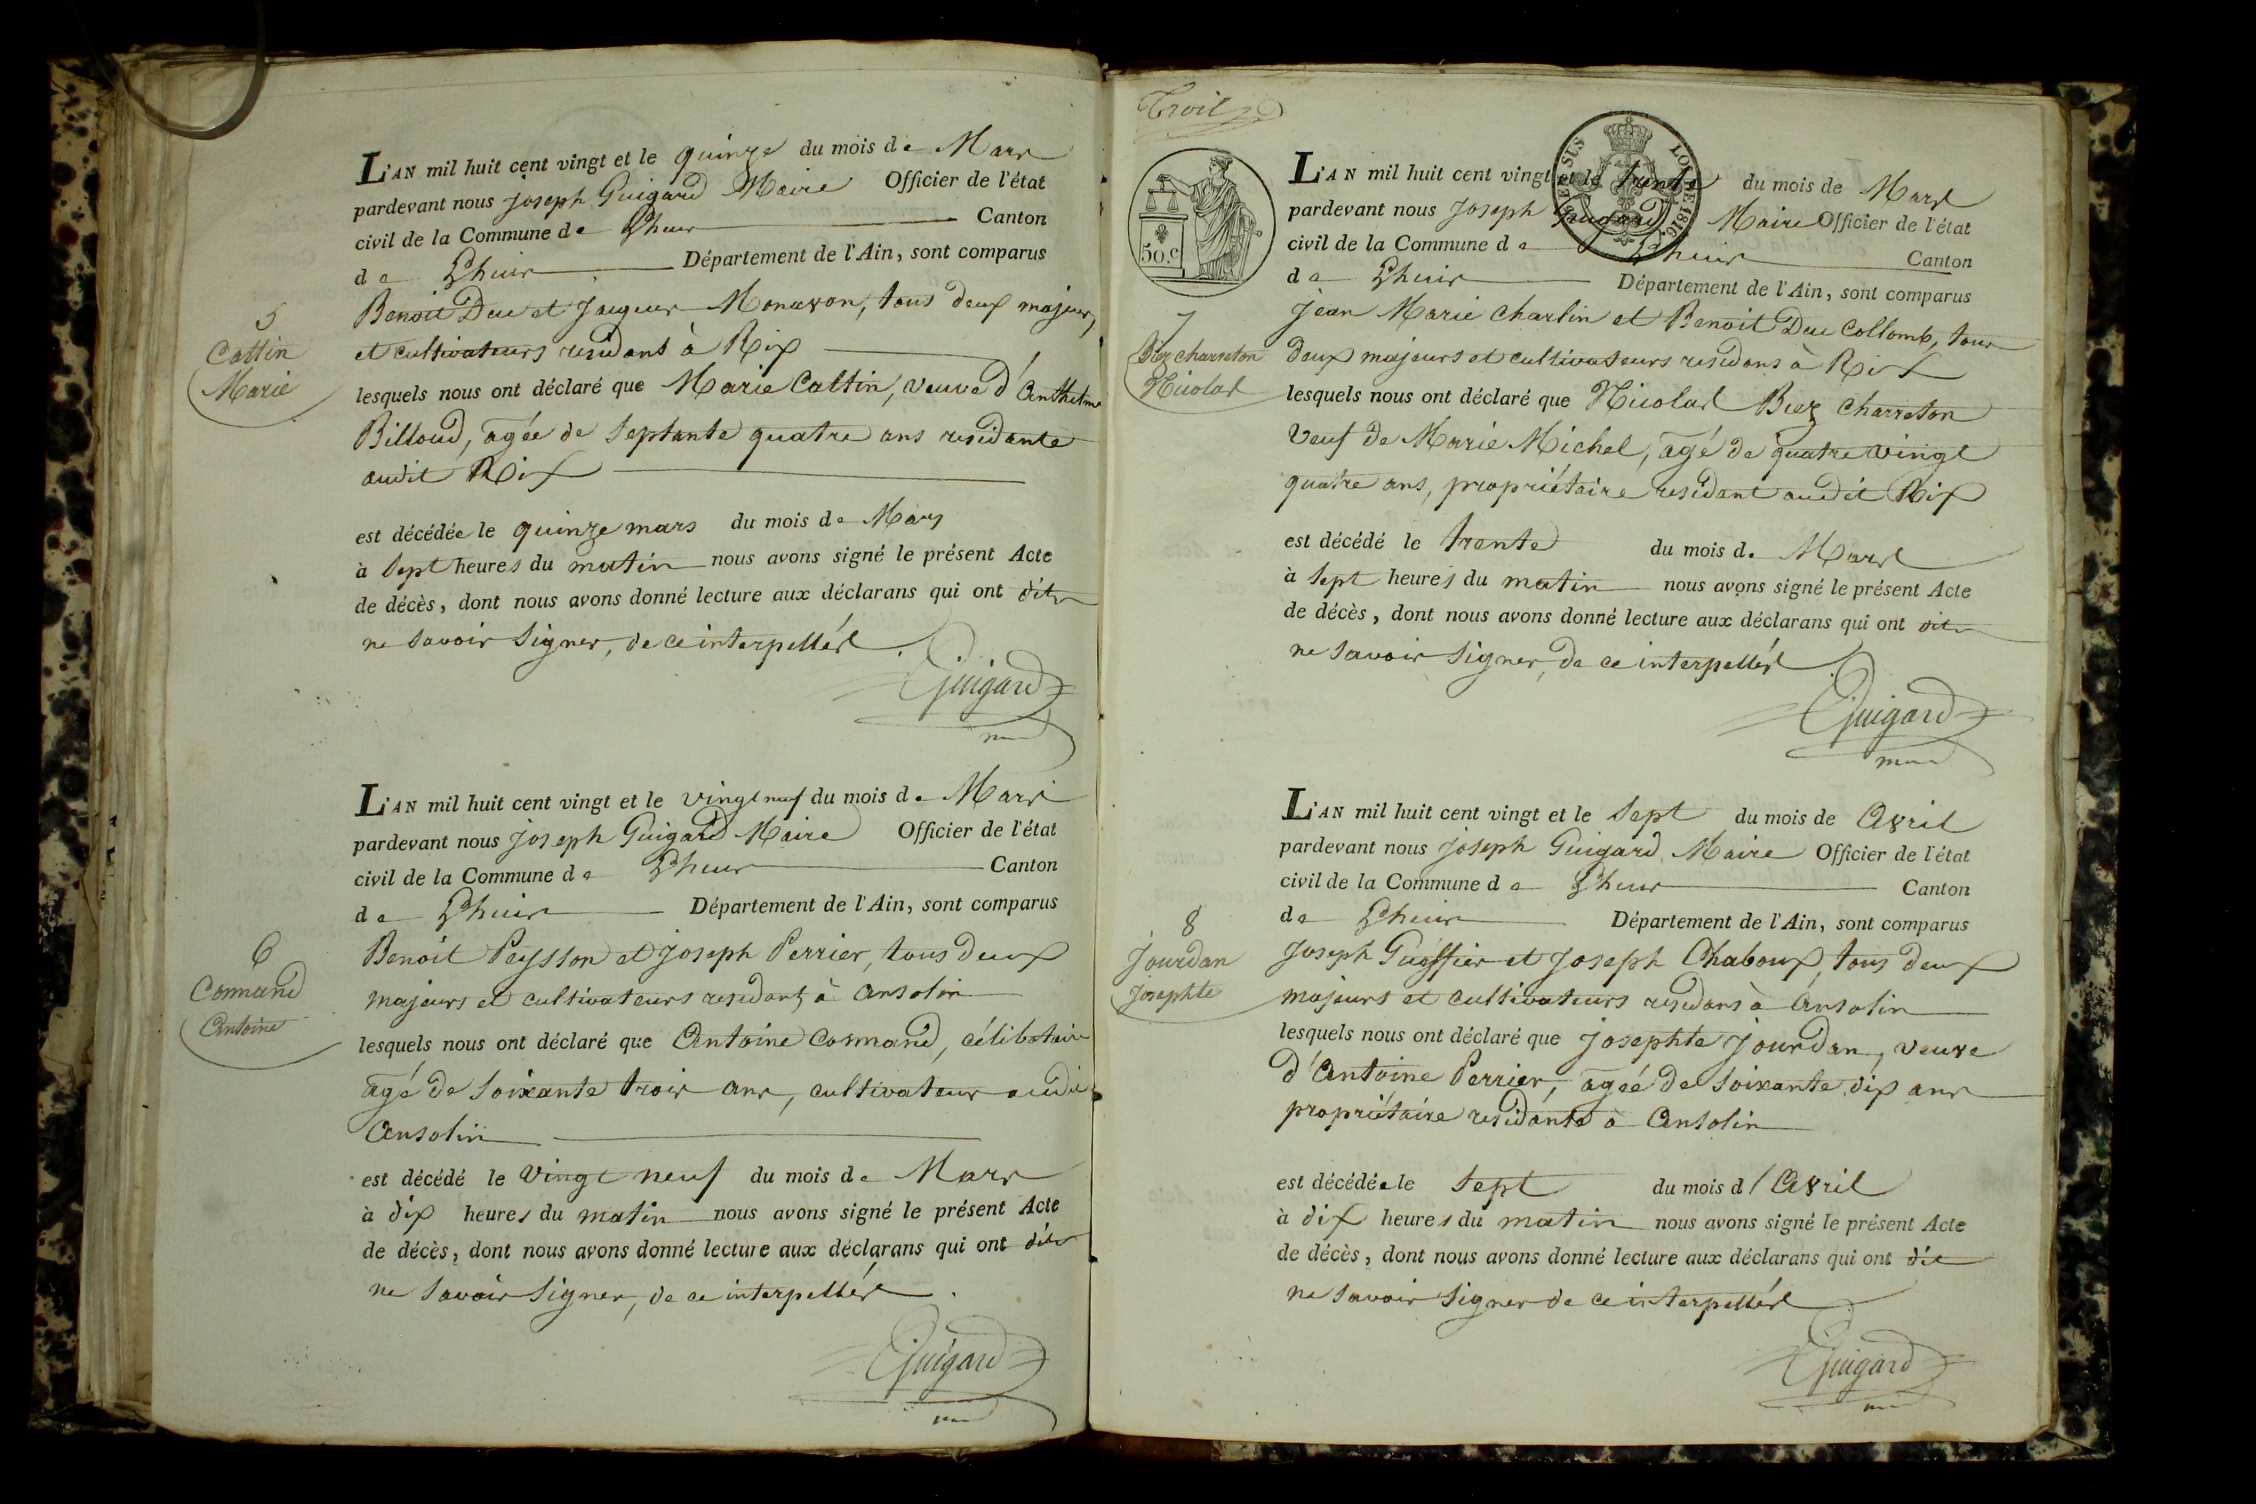 L'AN mil huit cent vingt et le quinze du mois de Mars
pardevant nous joseph Guigard Maire Officier de l'état
civil de la Commune de Lhuis Canton
de Lhuis Département de l'Ain, sont comparus
Benoit Duc et Jacques Monavon, tous deux majeurs,
et cultivateurs residant à Rix
5
Cattin
Marie
lesquels nous ont déclaré que Marie Cattin, veuve d'Anthelme
Billoud, agée de septante quatre ans residante
audit Rix
est décédée le quinze mars du mois de Mars
à sept heures du matin nous avons signé le présent Acte
de décès, dont nous avons donné lecture aux déclarans qui ont dits
ne savoir signer, de ce interpellés
Guigard
L'AN mil huit cent vingt et le vingt neuf du mois de Mars
pardevant nous joseph Guigard Maire Officier de l'état
civil de la Commune de Lhuis Canton
de Lhuis Département de l'Ain, sont comparus
6
Cosmand
Antoine
Benoit Peysson et joseph Perrier, tous deux
majeurs et cultivateurs residants à Ansolin
lesquels nous ont déclaré que Antoine Cosmand, célibataire
agé de soixante trois ans, cultivateur audit
Ansolin
est décédé le vingt neuf du mois de Mars
à dix heures du matin nous avons signé le présent Acte
de décès, dont nous avons donné lecture aux déclarans qui ont dits
ne savoir signer, de ce interpellés
Guigard
Troil
50.c
LOI DE 1816.
L'AN mil huit cent vingt et le trente du mois de Mars
pardevant nous Joseph Guigard Maire Officier de l'état
civil de la Commune de Lhuis Canton
de Lhuis Département de l'Ain, sont comparus
7
Biez charreton
Nicolas
jean Marie Charlin et Benoit Duc Collomb, tous
deux majeurs et cultivateurs residans à Rix
lesquels nous ont déclaré que Nicolas Biez Charreton
veuf de Marie Michel, agé de quatre vingt
quatre ans, propriétaire residant audit Rix
est décédé le trente du mois de Mars
à sept heures du matin nous avons signé le présent Acte
de décès, dont nous avons donné lecture aux déclarans qui ont dits
ne savoir signer, de ce interpellés
Guigard
L'AN mil huit cent vingt et le sept du mois de Avril
pardevant nous joseph Guigard Maire Officier de l'état
civil de la Commune de Lhuis Canton
de Lhuis Département de l'Ain, sont comparus
8
Jourdan
Josephte
Joseph Guoffier et Joseph Chaboux, tous deux
majeurs et cultivateurs residans à Ansolin
lesquels nous ont déclaré que josephte jourdan, veuve
d'Antoine Perrier, ageé de soixante dix ans
propriétaire residante à Ansolin
est décédée le sept du mois d'Avril
à dix heures du matin nous avons signé le présent Acte
de décès, dont nous avons donné lecture aux déclarans qui ont dit
ne savoir signer de ce interpellés
Guigard